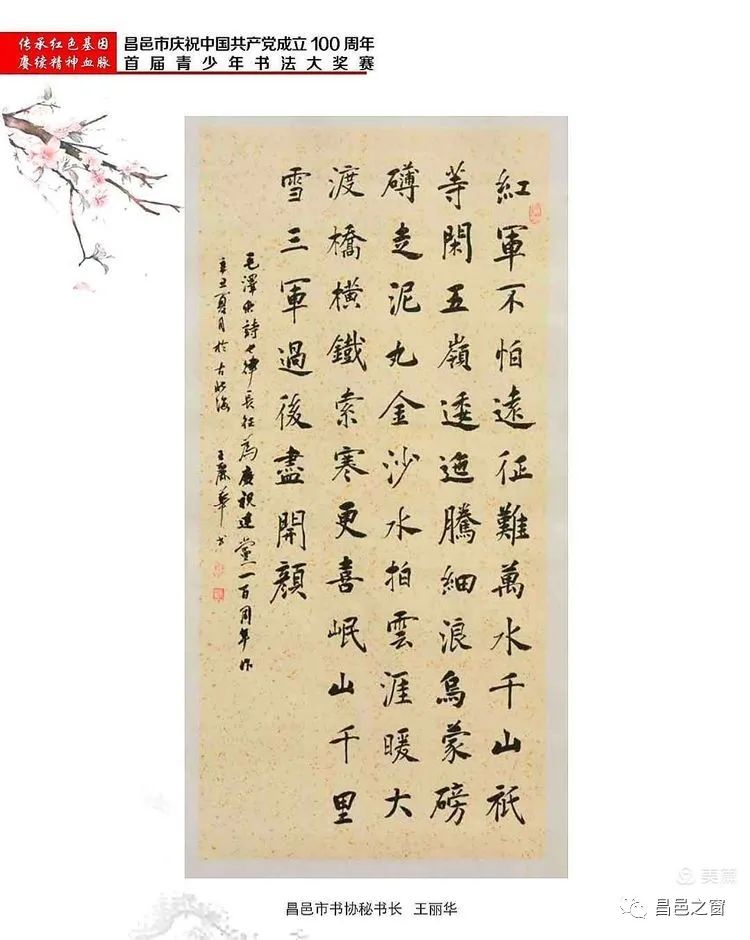 传承红色基因
赓续精神血脉
昌邑市庆祝中国共产党成立100周年
首届青少年书法大奖赛
紅軍不怕遠征難萬水千山祇
等閑五嶺逶迤騰細浪烏蒙磅
礴走泥丸金沙水拍雲涯暖大
渡橋橫鐵索寒更喜岷山千里
雪三軍過後盡開顏
毛澤東詩七律長征為慶祝建黨一百周年作
辛丑夏月於古北海 王麗華书
昌邑市书协秘书长 王丽华
美篇
昌邑之窗